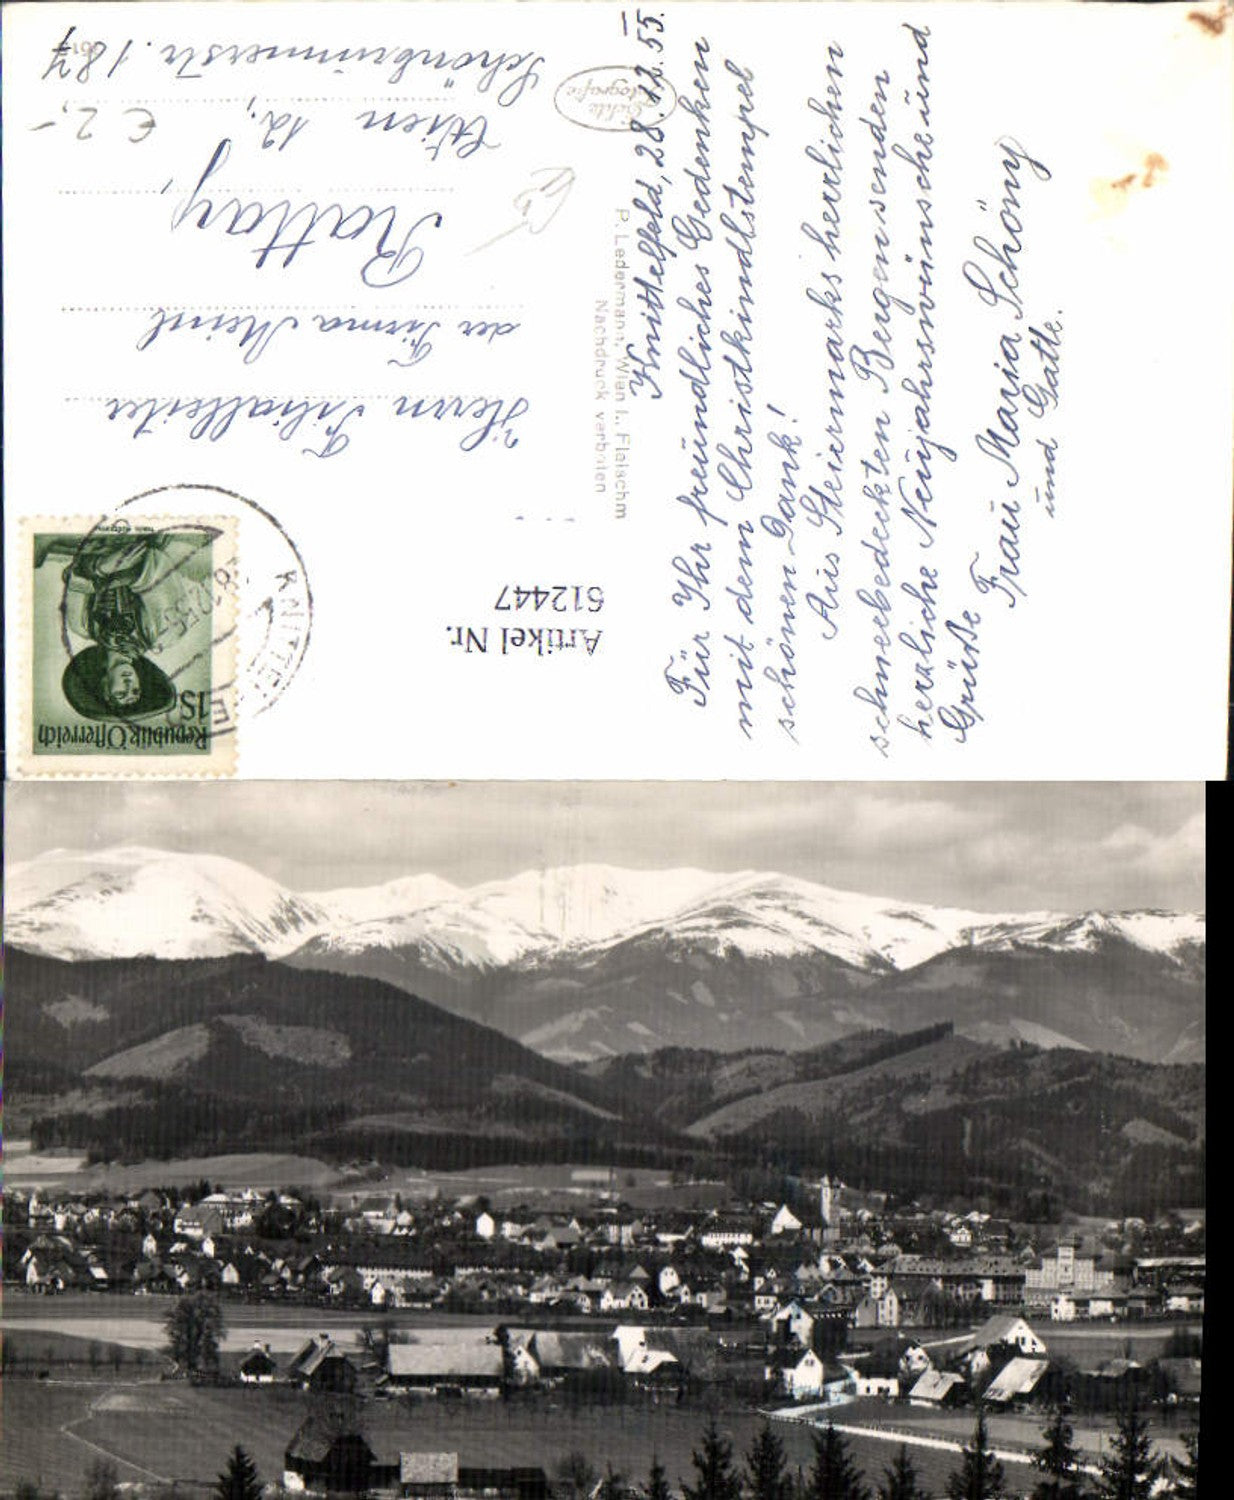 Knittelfeld, 28.12.55.
Für Ihr freundliches Gedenken
mit dem Christkindlstempel
schönen Dank!
Aus Steiermarks herrlichen
schneebedeckten Bergen senden
herzliche Neujahrswünsche und
Grüße
Frau Maria Schöny
und Gatte.
Echte
Fotografie
P. Ledermann, Wien I., Fleischm
Nachdruck verboten
Artikel Nr.
612447
Republik Österreich
1S
KNITTELFE
Herrn Filialleiter
der Firma Meinl
Rattay,
Wien 12,
Schönbrunnerstr. 187
€ 2,-